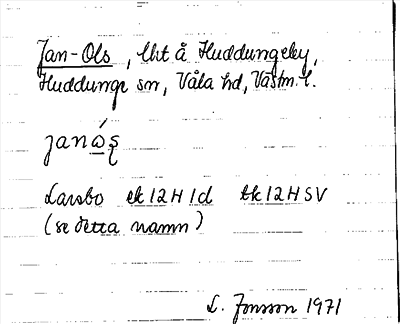 Jan-Ols, lht å Huddungeby,
Huddunge sn, Våla hd, Västm. l.
janώ̲ş
Larsbo ek 12H 1d tk 12H SV
(se detta namn)
L. Jonsson 1971